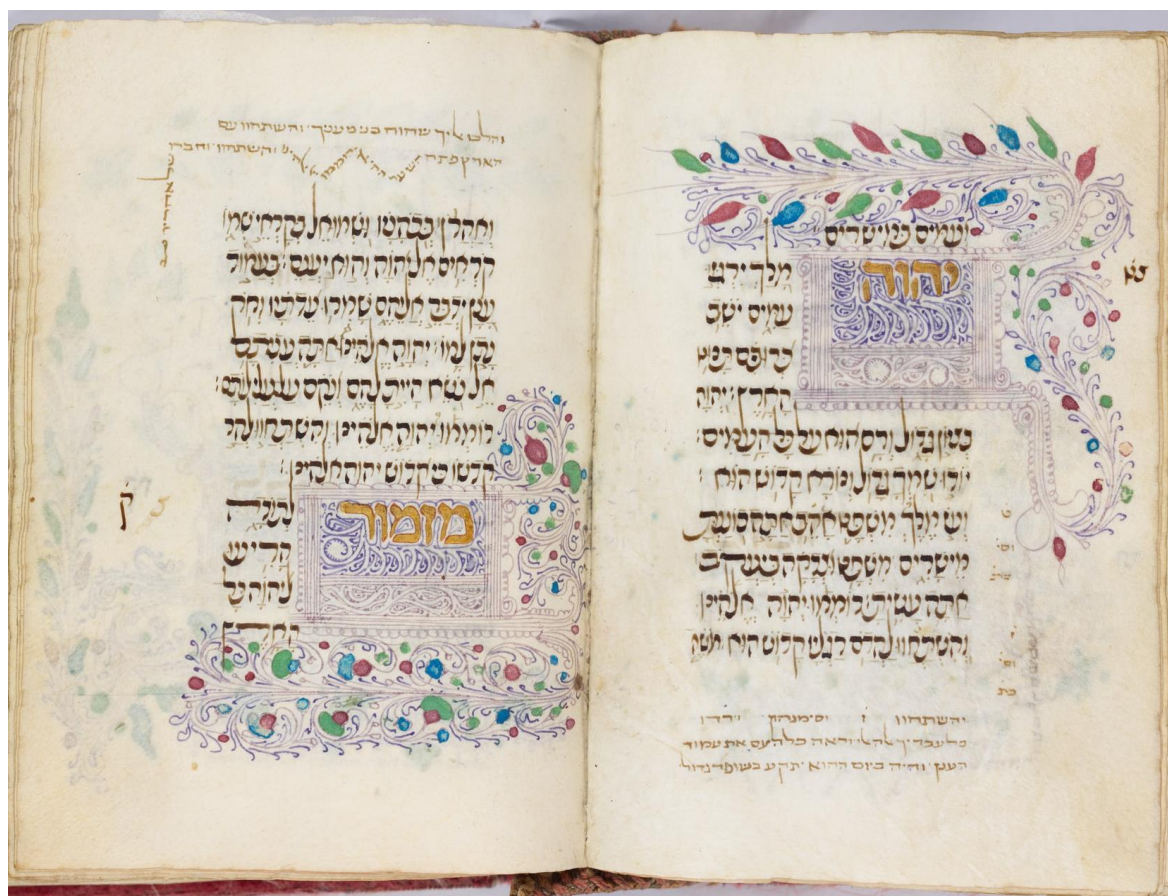 ועמים במישרים
יהוה
צט
מלך ירגזו
עמים ישב
כרובים תנוט
הארץ יהוה
בציון גדול ורם הוא על כל העמים
יודו שמך גדול ונורא קדוש הוא
ועז מלך משפט אהב אתה כוננת
מישרים משפט וצדקה ביעקב
אתה עשית רוממו יהוה אלהינו
והשתחוו להדם רגליו קדוש הוא משה
והשתחוו וירדו
כל עבדיך אלה אלי וראה כל העם את עמוד
הענן והיה ביום ההוא יתקע בשופר גדול
והלכו אליך שחוח בני מעניך והשתחוו עם
הארץ פתח השער ההוא רוממו והשתחוו וחברו
ואהרן בכהניו ושמואל בקראי שמו
קראים אל יהוה והוא יענם בעמוד
ענן ידבר אליהם שמרו עדתיו וחק
נתן למו יהוה אלהינו אתה עניתם
אל נשא היית להם ונקם על עלילותם
רוממו יהוה אלהינו והשתחוו להר
קדשו כי קדוש יהוה אלהינו
מזמור
ק
לתודה
הריעו
ליהוה כל
הארץ